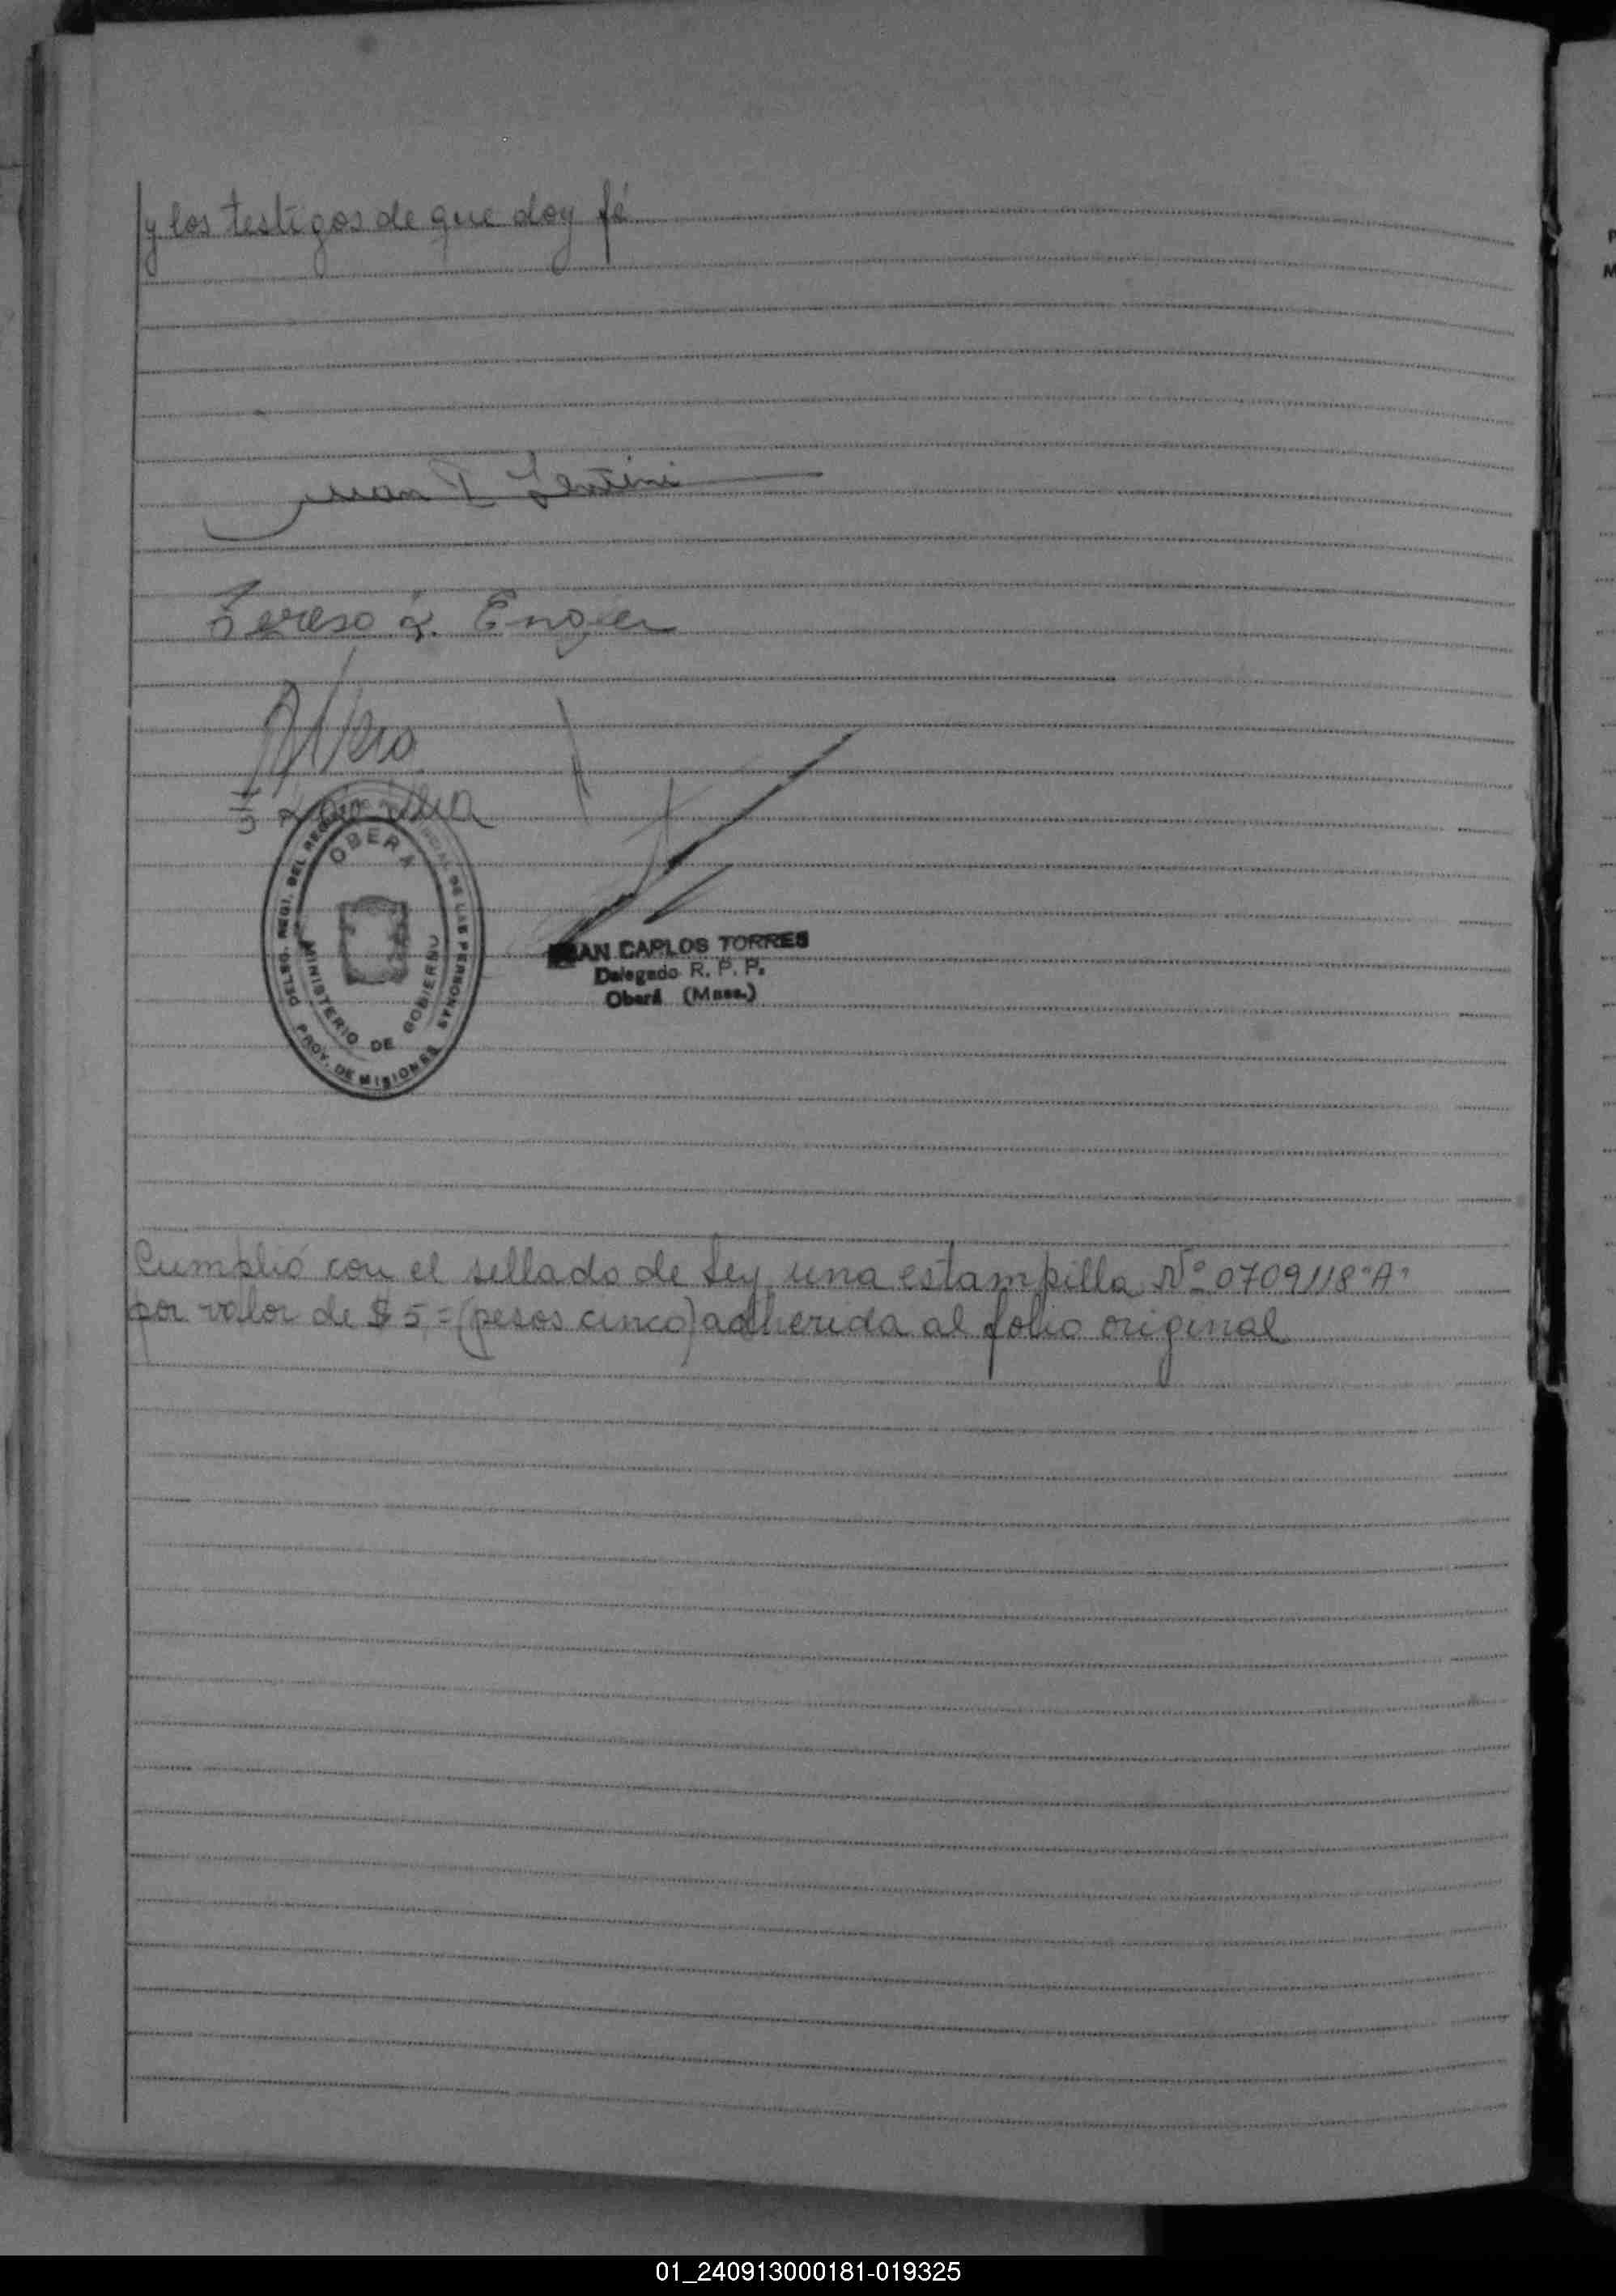 y los testigos de que doy fé
Juan Lentini
Teresa L. Engler
OBERA
DELEG. REGI. DEL REGISTRO PROVINCIAL DE LAS PERSONAS
MINISTERIO DE GOBIERNO
PROV. DE MISIONES
JUAN CARLOS TORRES
Delegado R. P. P.
Oberá (Mnes.)
Cumplió con el sellado de Ley una estampilla Nº 0709118 "A"
por valor de $ 5 = (pesos cinco) adherida al folio original
01_240913000181-019325